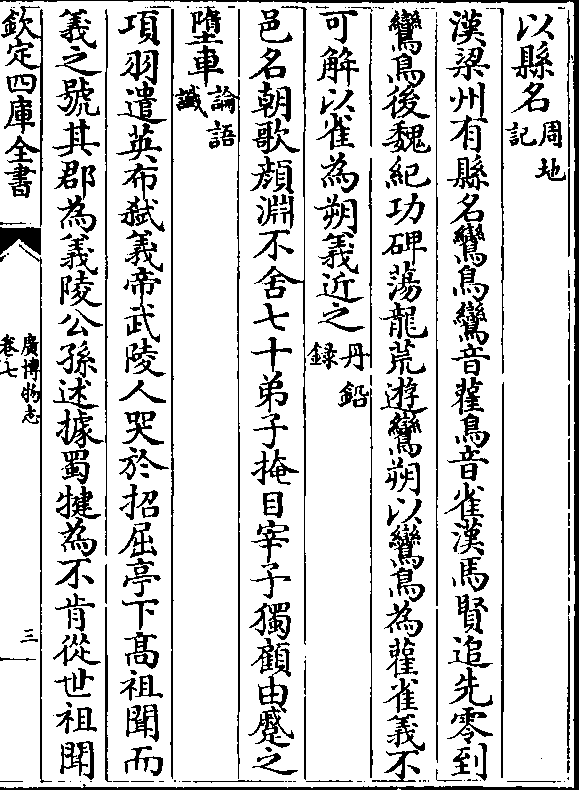 以縣名周地記
漢梁州有縣名鸞鳥鸞音雚鳥音雀漢馬賢追先零到
鸞鳥後魏紀功碑蕩龍荒遊鸞朔以鸞鳥為雚雀義不
可解以雀為朔義近之丹鉛録
邑名朝歌顔淵不舍七十弟子掩目宰予獨顧由蹙之
墮車論語䜟
項羽遣英布弑義帝武陵人哭於招屈亭下髙祖聞而
義之號其郡為義陵公孫述據蜀犍為不肯從世祖聞
欽定四庫全書
廣博物志
卷七
三